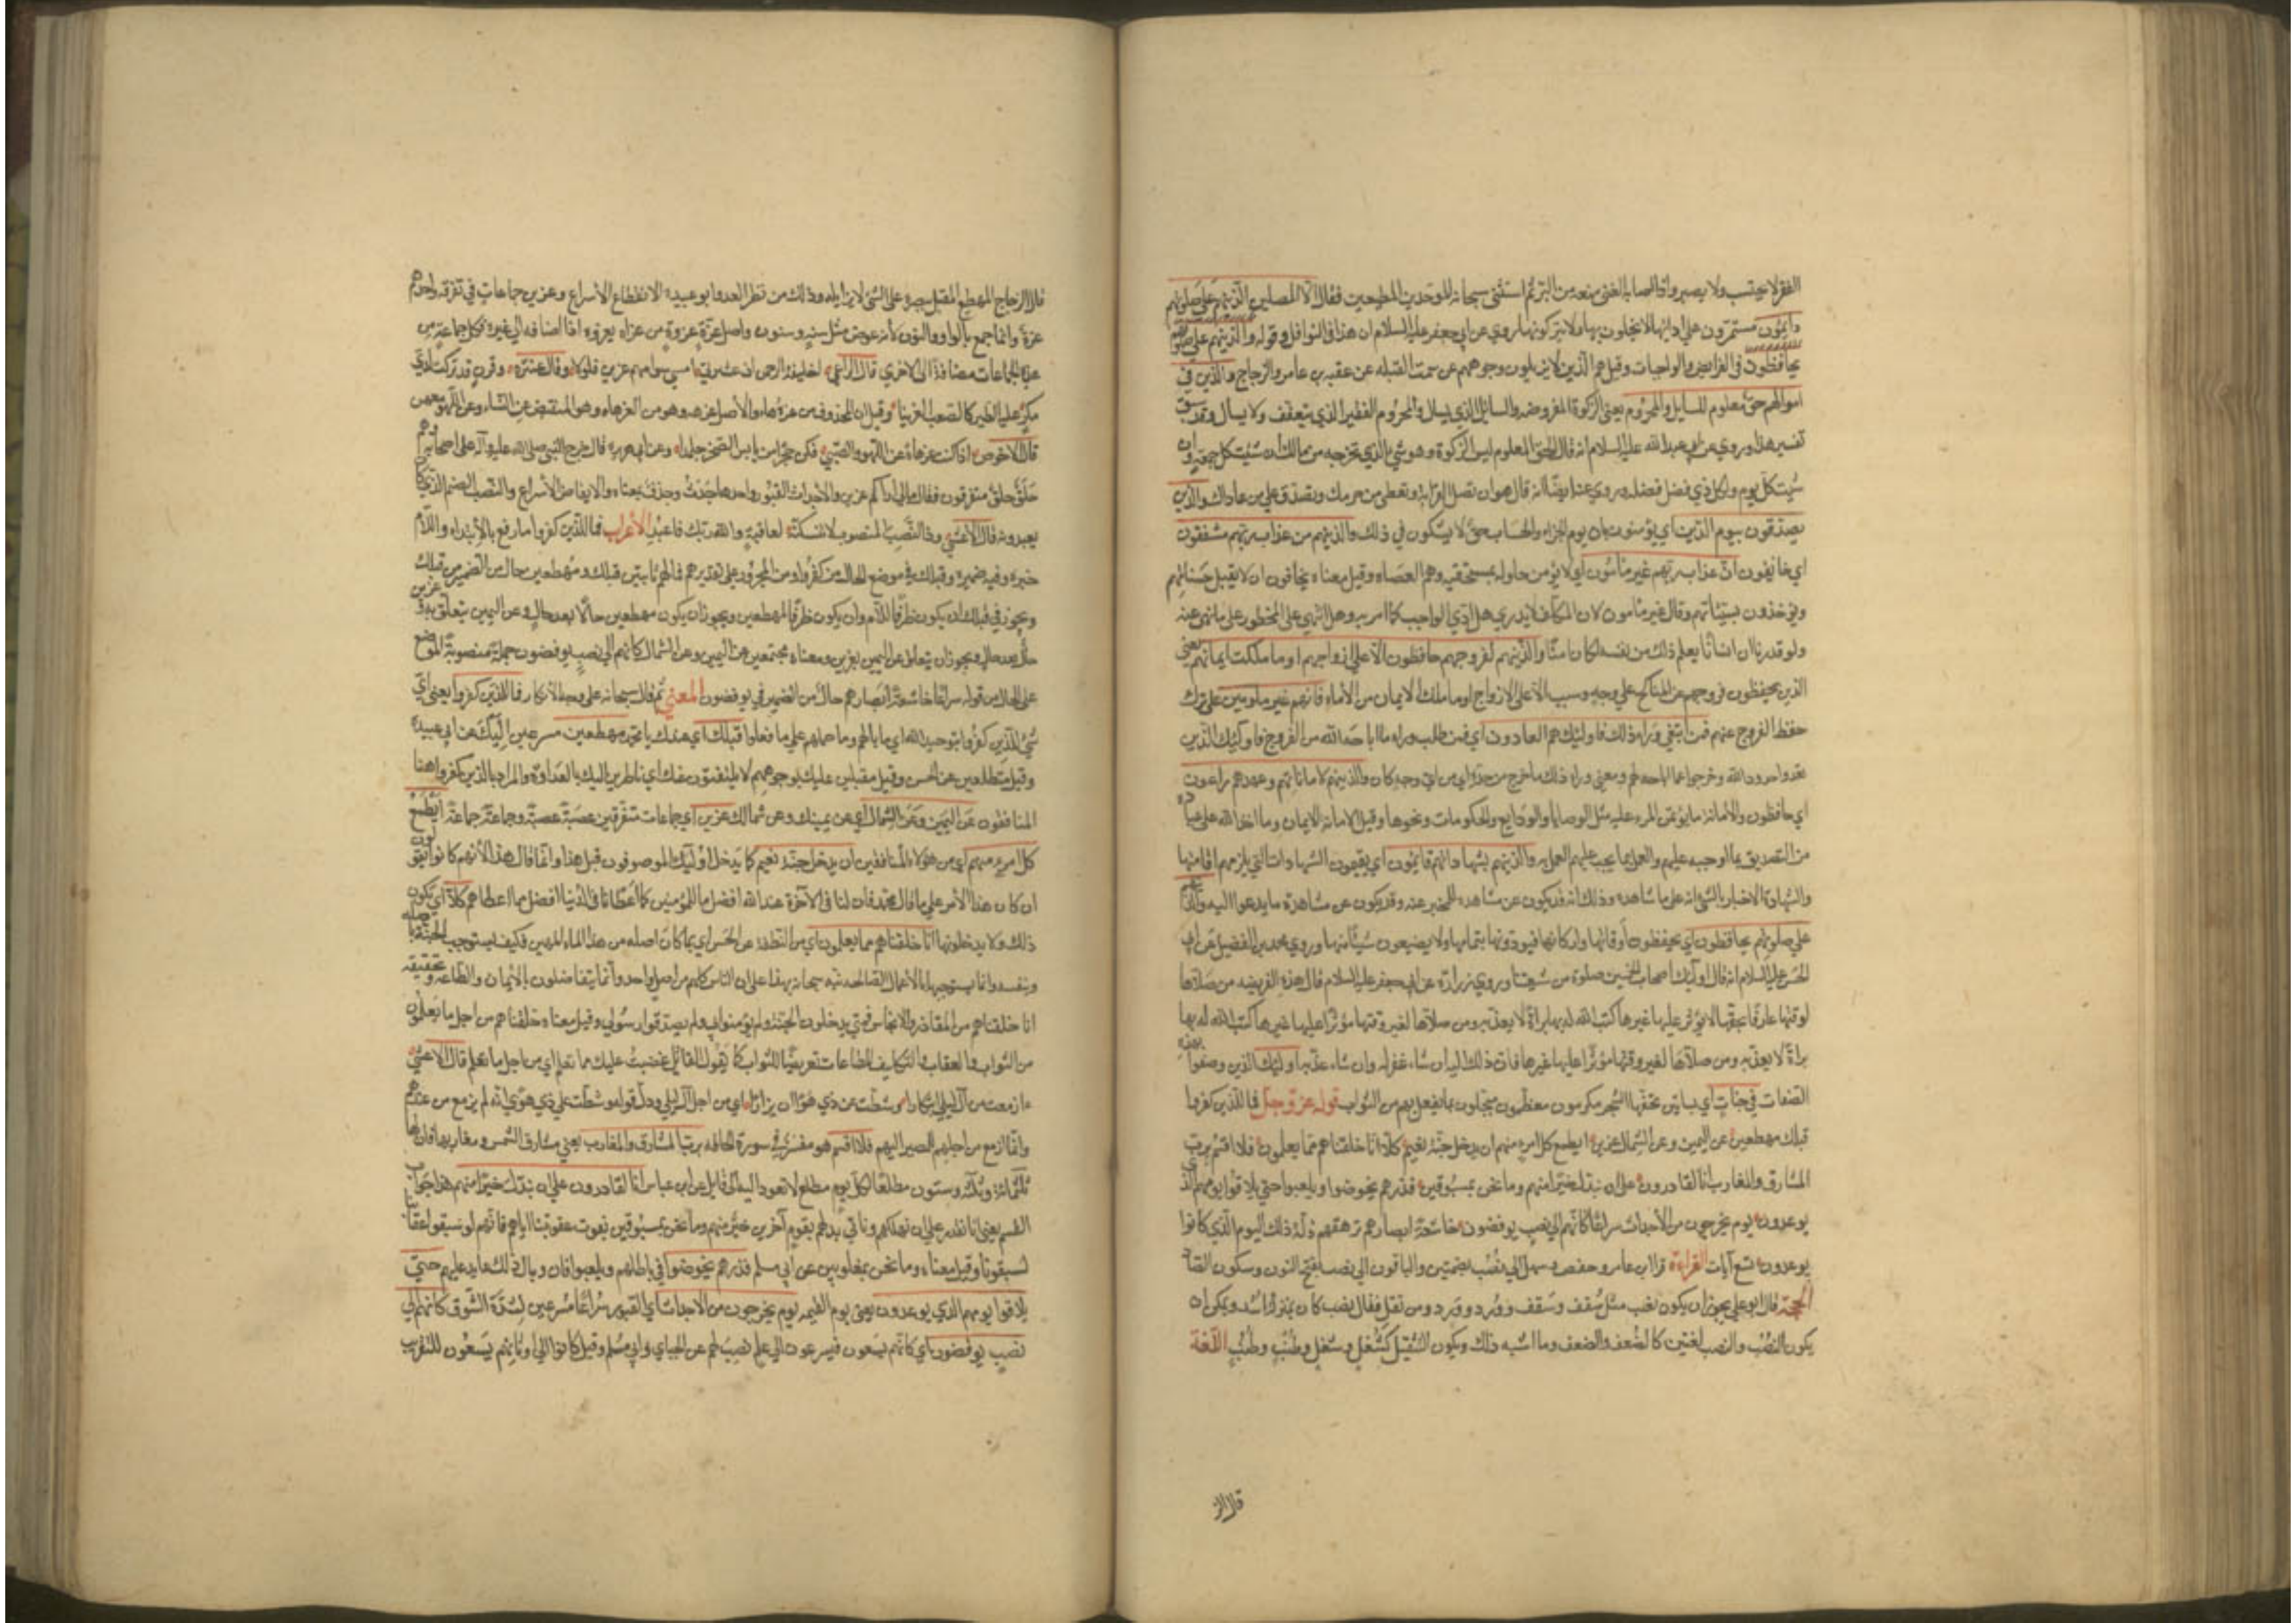 الفقر لا يحتسب ولا يصبر واذا اصابه الغنى منعه من البر ثم استثنى سبحانه الموحدين المطيعين فقال الا المصلين الذين هم على صلوتهم
دايمون مستمرون على ادائها لا يخلون بها ولا يتركونها وروي عن ابي جعفر عليه السلام ان هذا في النوافل وقوله والذين هم على صلوتهم
يحافظون في الفرايض والواجبات وقيل هم الذين لا يزيلون وجوههم عن سمت القبله عن عقبه بن عامر والزجاج والذين في
اموالهم حق معلوم للسايل والمحروم يعني الزكوة المفروضه والسايل الذي يسال والمحروم الفقير الذي يتعفف ولا يسال وقد سبق
تفسير هذا وروي عن ابي عبد الله عليه السلام انه قال الحق المعلوم ليس الزكوة وهو شيء الذي تخرجه من مالك ان شئت كل جمعه وان
شئت كل يوم ولكل ذي فضل فضله وروي عنه ايضا انه قال هو ان تصل القرابه وتعطي من حرمك وتصدق على من عاداك والذين
يصدقون بيوم الدين اي يؤمنون بان يوم الجزاء والحساب حق لا يشكون في ذلك والذين هم من عذاب ربهم مشفقون
اي خايفون ان عذاب ربهم غير مأمون اي لا يؤمن حلوله بمستحقيه وهم العصاه وقيل معناه يخافون ان لا يقبل حسناتهم
ويؤخذون بسيئاتهم وقال غير مأمون لان المكلف لا يدري هل ادي الواجب كما امر به وهل انتهي على المحظور على ما نهي عنه
ولو قدرنا ان انسانا يعلم ذلك من نفسه لكان امنا والذين هم لفروجهم حافظون الا على ازواجهم او ما ملكت ايمانهم يعني
الذين يحفظون فروجهم عن المناكح على وجه وسبب الا على الازواج او ما ملك الايمان من الاماء فانهم غير ملومين على ترك
حفظ الفروج عنهم فمن ابتغي وراء ذلك فاوليك هم العادون اي فمن طلب وراء ما اباحه الله من الفروج فاوليك الذين
تعدوا حدود الله وخرجوا عما اباحه لهم ومعني وراء ذلك ما خرج من حده اي من اي وجه كان والذين هم لاماناتهم وعهدهم راعون
اي حافظون والامانة ما يؤتمن المرء عليه مثل الوصايا والودايع والحكومات ونحوها وقيل الامانه الايمان وما اخذ الله على عباده
من التصديق بما اوجبه عليهم والعمل بما يجب عليهم العمل به والذين هم بشهاداتهم قايمون اي يقيمون الشهادات التي يلزمهم اقامتها
والشهادة الاخبار بالشيء انه على ما شاهده وذلك انه قد يكون عن مشاهده للمخبر عنه وقد يكون عن مشاهدة ما يدعوا اليه والذين هم
على صلوتهم يحافظون اي يحفظون أوقاتها واركانها فيودونها بتمامها ولا يضيعون شيئا منها وروي محمد بن الفضيل عن ابي
الحسن عليه السلام انه قال اوليك اصحاب الخمسين صلوة من شيعتنا وروي زرارة عن ابي جعفر عليه السلام قال هذه الفريضه من صلاها
لوقتها عارفا بحقها لا يؤثر عليها غيرها كتب الله له بها براة لا يعذبه ومن صلاها لغير وقتها مؤثرا عليها غيرها
براة لا يعذبه ومن صلاها لغير وقتها مؤثرا عليها غيرها فان ذلك اليه ان شاء غفر له وان شاء عذبه اوليك الذين وصفوا بهذه
الصفات في جنات اي بساتين تحفها الشجر مكرمون معظمون مبجلون بما يفعل بهم من الثواب قوله عز وجل فما للذين كفروا
قبلك مهطعين عن اليمين وعن الشمال عزين ايطمع كل امرء منهم ان يدخل جنة نعيم كلا انا خلقناهم مما يعلمون فلا اقسم برب
المشارق والمغارب انا لقادرون على ان نبدل خيرا منهم وما نحن بمسبوقين فذرهم يخوضوا ويلعبوا حتي يلاقوا يومهم الذي
يوعدون يوم يخرجون من الأجداث سراعا كأنهم الي نصب يوفضون خاشعة ابصارهم ترهقهم ذلة ذلك اليوم الذي كانوا
يوعدون تسع آيات القراءة قرا ابن عامر وحفص وسهل الي نصب بضمتين والباقون الي نصب بفتح النون وسكون الصاد
الحجة قال ابو علي يجوز ان يكون نصب مثل سقف وسقف وورد وورد ومن ثقل فقال نصب كان بمنزلة اسد ويمكن ان
يكون النصب والنصب لغتين كالضعف والضعف وما اشبه ذلك ويكون التثقيل كشغل وشغل وطنب وطنب اللغة
قال الز
قال الزجاج المهطع المقبل ببصره على الشيء لا يزايله وذلك من نظر العدو ابو عبيدة الاهطاع الأسراع وعزين جماعات في تفرقه واحدهم
عزة وانما جمع بالواو والنون لأنه عوض مثل سنه وسنون واصل عزة عزوة من عزاه يعزوه اذا اضافه الي غيره فكل جماعة من
هذه الجماعات مضافة الى الاخري قال الراعي اخليفة الرحمن ان عشيرتي امسي سوامهم عزين فلولا وقال عنترة وقرن قد تركت لدي
مكر عليه الطير كالعصب العزينا وقيل ان المحذوف من عزة هاء والاصل عزهه وهو من العزهاه وهو المنقبض عن النساء وعن اللهو معهن
قال الاحوص اذا كنت عزهاة عن اللهو والصبي فكن حجرا من يابس الصخر جلمدا وعن ابي هريره قال خرج النبي صلى الله عليه وآله على اصحابه وهم
حلق حلق متفرقون فقال مالي اراكم عزين والأجداث القبور واحدها جدث وجدف بمعناه والايفاض الأسراع والنصب الصنم الذي كانوا
يعبدونه قال الاعشي وذا النصب المنصوب لا تنسكنه لعاقبة والله ربك فاعبد الأعراب فما للذين كفروا ما رفع بالأبتداء واللام
خبره وفيه ضمير وقبلك في موضع الحال من كفروا ومن المجرور على تقدير فما لهم ثابتين قبلك ومهطعين حال من الضمير من قبلك
ويجوز في قبلك ان يكون ظرفا للام وان يكون ظرفا لمهطعين ويجوز ان يكون مهطعين حالا بعد حال وعن اليمين يتعلق به وعزين
حال بعد حال ويجوز ان يتعلق عن اليمين بعزين ومعناه مجتمعين عن اليمين وعن الشمال كانهم الي نصب يوفضون جملة منصوبة الموضع
على الحال من قوله سراعا خاشعة أبصارهم حال من الضمير في يوفضون المعني ثم قال سبحانه على وجه الأنكار فما للذين كفروا يعني اي
شيء للذين كفروا بتوحيد الله اي ما بالهم وما حملهم على ما فعلوا قبلك اي عندك يا محمد مهطعين مسرعين اليك عن ابي عبيدة
وقيل متطلعين عن الحسن وقيل مقبلين عليك بوجوههم لا يلتفتون عنك اي ناظرين اليك بالعداوة والمراد بالذين كفروا هنا
المنافقون عن اليمين وعن الشمال اي عن يمينك وعن شمالك عزين اي جماعات متفرقين عصبة عصبة وجماعة جماعة ايطمع
كل امرء منهم اي من هؤلاء المنافقين ان يدخل جنة نعيم كما يدخل اوليك الموصوفون قبل هذا وانما قال هذا لأنهم كانوا يقولون
ان كان هذا الأمر على ما قال محمد فان لنا في الآخرة عند الله افضل ما للمؤمنين كما أعطانا في الدنيا افضل مما اعطاهم كلا اي لا يكون
ذلك ولا يدخلونها انا خلقناهم مما يعلمون اي من النطفة عن الحسن اي بما كان اصله من هذا الماء المهين فكيف يستوجب الجنة باصله
وبنفسه وانما يستوجبها بالأعمال الصالحة نبه سبحانه بهذا على ان الناس كلهم من اصل واحد وانما يتفاضلون بالأيمان والطاعة وتحقيقه
انا خلقناهم من المقاذر والانجاس فمتي يدخلون الجنة ولم يؤمنوا بي ولم يصدقوا رسولي وقيل معناه خلقناهم من اجل ما يعلمون
من الثواب والعقاب والتكاليف للطاعات تعريضا للثواب كما يقول القائل غضبت عليك مما تعلم اي من اجل ما تعلم قال الاعشي
ءازمعت من آل ليلي ابتكارا وشطت على ذي هوي ان يزارا اي من اجل آل ليلي ودل قوله وشطت على ذي هوي انه لم يزمع من عندهم
وانما ازمع من اجلهم للمصير اليهم فلا اقسم هو مفسر في سورة الحاقه برب المشارق والمغارب يعني مشارق الشمس ومغاربها فان لها
ثلثمائة وثلثه وستون مطلعا لكل يوم مطلع لا تعود اليه الي قابل عن ابن عباس انا لقادرون على ان نبدل خيرا منهم هذا جواب
القسم يعني انا نقدر على ان نهلكهم وناتي بدلهم بقوم آخرين خير منهم وما نحن بمسبوقين يفوت عقوبتنا اياهم فانهم لو سبقوا عقابنا
لسبقونا وقيل معناه وما نحن بمغلوبين عن ابي مسلم فذرهم يخوضوا في باطلهم ويلعبوا فان وبال ذلك عايد عليهم حتي
يلاقوا يومهم الذي يوعدون يعني يوم القيمه يوم يخرجون من الاجداث اي القبور سراعا مسرعين لشدة السوق كانهم الي
نصب يوفضون اي كانهم يسعون فيسرعون الي علم نصب لهم عن الجبايي وابي مسلم وقيل كانوا الي اوثانهم يسعون للتقرب